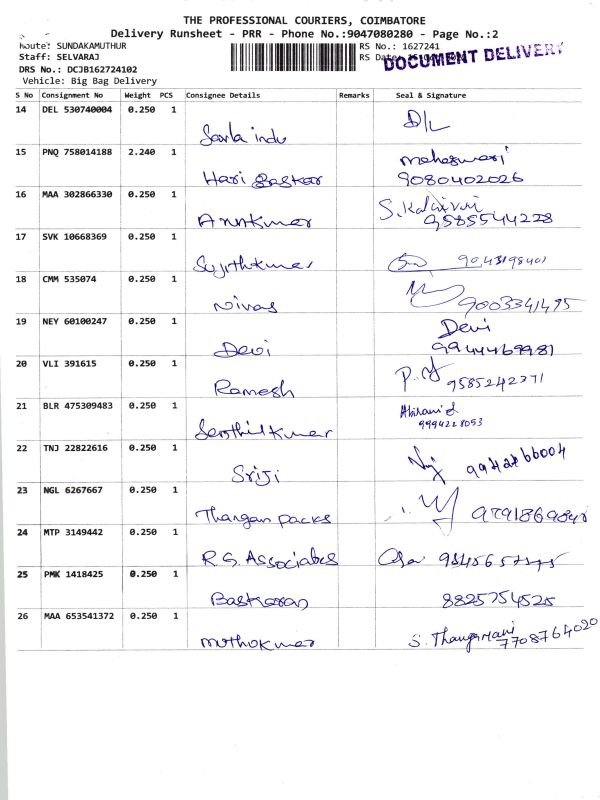 THE PROFESSIONAL COURIERS, COIMBATORE
Delivery Runsheet - PRR - Phone No.:9047080280 - Page No.:2
Route: SUNDAKAMUTHUR RS No.: 1627241
Staff: SELVARAJ RS Date
DOCUMENT DELIVERY
DRS No.: DCJB162724102
Vehicle: Big Bag Delivery
S No Consignment No Weight PCS Consignee Details Remarks Seal & Signature
14 DEL 530740004 0.250 1
Savla indu D/L
15 PNQ 758014188 2.240 1 maheswari
Hari Baskar 9080402026
16 MAA 302866330 0.250 1 S.Kalaivani
Arunkumar 9585544228
17 SVK 10668369 0.250 1
Sujithkumar
18 CMM 535074 0.250 1
Nivas 9003341495
19 NEY 60100247 0.250 1 Devi
Devi 9944469981
20 VLI 391615 0.250 1
Ramesh 9585242371
21 BLR 475309483 0.250 1
Senthilkumar 9994228053
22 TNJ 22822616 0.250 1
Sriji
23 NGL 6267667 0.250 1
Thangam packs
24 MTP 3149442 0.250 1
R.S. Associates
25 PMK 1418425 0.250 1
Baskaran 8825754525
26 MAA 653541372 0.250 1
muthukumar S. Thangamani
7708764020